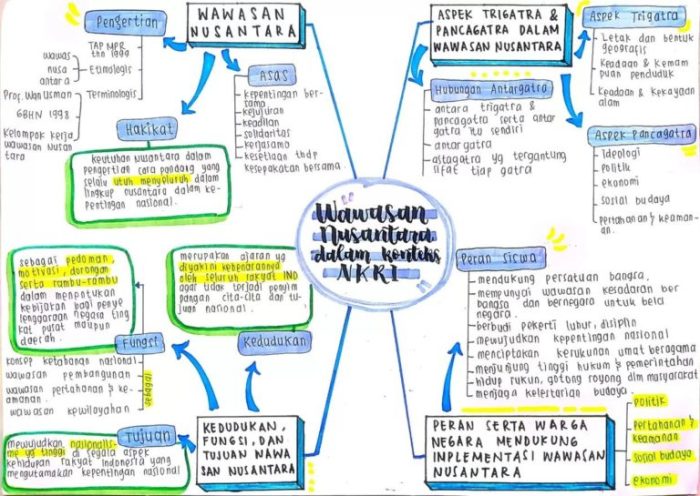 Wawasan
Nusantara
dalam konteks
NKRI
WAWASAN
NUSANTARA
Pengertian
TAP MPR
thn 1999
wawas
nusa
antara
Etimologis
Prof. Wan Usman
GBHN 1998
Kelompok kerja
wawasan Nusan
tara
Terminologis
Asas
kepentingan ber-
sama
kejujuran
keadilan
solidaritas
kerjasama
kesetiaan thdp
kesepakatan bersama
Hakikat
keutuhan nusantara dalam
pengertian cara pandang yang
selalu utuh menyeluruh dalam
lingkup nusantara dalam ke-
pentingan nasional.
ASPEK TRIGATRA &
PANCAGATRA DALAM
WAWASAN NUSANTARA
Aspek Trigatra
Letak dan bentuk
geografis
Keadaan & Kemam
puan penduduk
Keadaan & Kekayaan
alam
Hubungan Antargatra
antara trigatra &
pancagatra serta antar
gatra itu sendiri
antargatra
astagatra yg tergantung
sifat tiap gatra
Aspek Pancagatra
ideologi
politik
ekonomi
sosial budaya
pertahanan & keaman-
an.
KEDUDUKAN,
FUNGSI, DAN
TUJUAN WAWA
SAN NUSANTARA
Kedudukan
merupakan ajaran yg
diyakini kebenarannya
oleh seluruh rakyat IND
agar tidak terjadi penyim
pangan cita-cita dan tu-
juan nasional.
Fungsi
sebagai pedoman,
motivasi, dorongan
serta rambu-rambu
dalam menentukan
kebijakan bagi penye
lenggaraan negara ting
kat pusat maupun
daerah.
sebagai
konsep ketahanan nasional
wawasan pembangunan
wawasan pertahanan & ke-
amanan.
wawasan kewilayahan
Tujuan
mewujudkan nasionalis-
me yg tinggi di segala aspek
kehidupan rakyat Indonesia yang
mengutamakan kepentingan nasional
PERAN SERTA WARGA
NEGARA MENDUKUNG
INPLEMENTASI WAWASAN
NUSANTARA
Peran Siswa
mendukung persatuan bangsa,
mempunyai wawasan kesadaran ber
bangsa dan bernegara untuk bela
negara.
berbudi pekerti luhur, disiplin
mewujudkan kepentingan nasional
menciptakan kerukunan umat beragama
menjunjung tinggi hukum & pemerintahan
hidup rukun, gotong royong dlm masyarakat
menjaga kelestarian budaya.
politik
pertahanan &
keamanan
sosial budaya
ekonomi